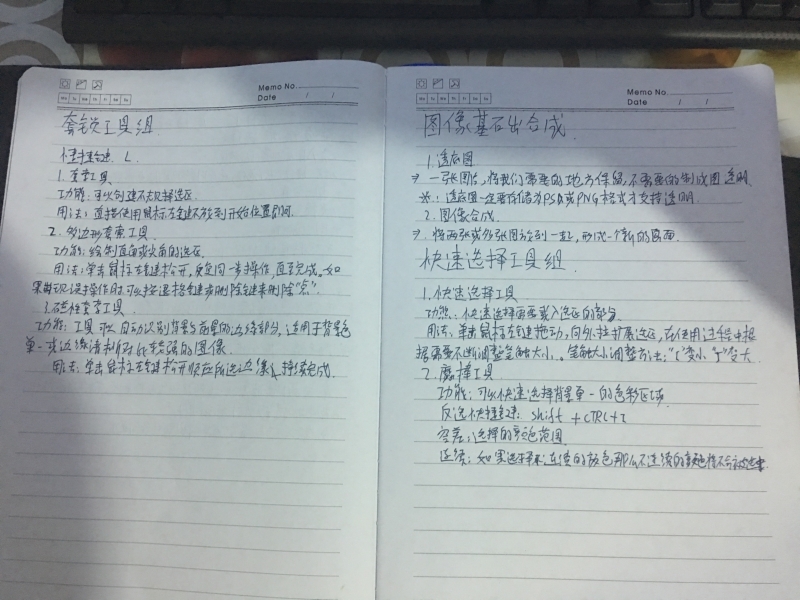 Memo No.
Mo Tu We Th Fr Sa Su
Date / /
套锁工具组
快捷键 L
1. 套索工具
功能: 可以创建不规则选区
用法: 直接使用鼠标左键不放到开始位置即可
2. 多边形套索工具
功能: 绘制直角或尖角的选区
用法: 单击鼠标左键松开, 反复同一步操作, 直至完成。如
果出现误操作时可以按退格键或删除键来删除“点”.
3. 磁性套索工具
功能: 工具可以自动识别背景与前景的边缘部分, 适用于背景色
单一或边缘清晰对比较强的图像
用法: 单击鼠标左键松开顺应所选边缘, 持续完成.
Memo No.
Mo Tu We Th Fr Sa Su
Date / /
图像基础出合成
1. 透底图
⇒ 一张图片, 将我们需要的地方保留, 不需要的制成图透明
※: 透底图一定要存储为PSD或PNG格式才支持透明.
2. 图像合成.
⇒ 将两张或多张图放到一起, 形成一个新的画面.
快速选择工具组
1. 快速选择工具
功能: 快速选择需要载入选区的部分
用法: 单击鼠标左键拖动, 向外扩展选区, 在使用过程中根
据需要不断调整笔触大小. 笔触大小调整方法: “[”变小 “]”变大
2. 魔棒工具
功能: 可以快速选择背景单一的色彩区域
反选快捷键: shift + CTRL + I
容差: 选择的颜色范围
连续: 如果选择连续的颜色那么不连续的颜色将不会被选中